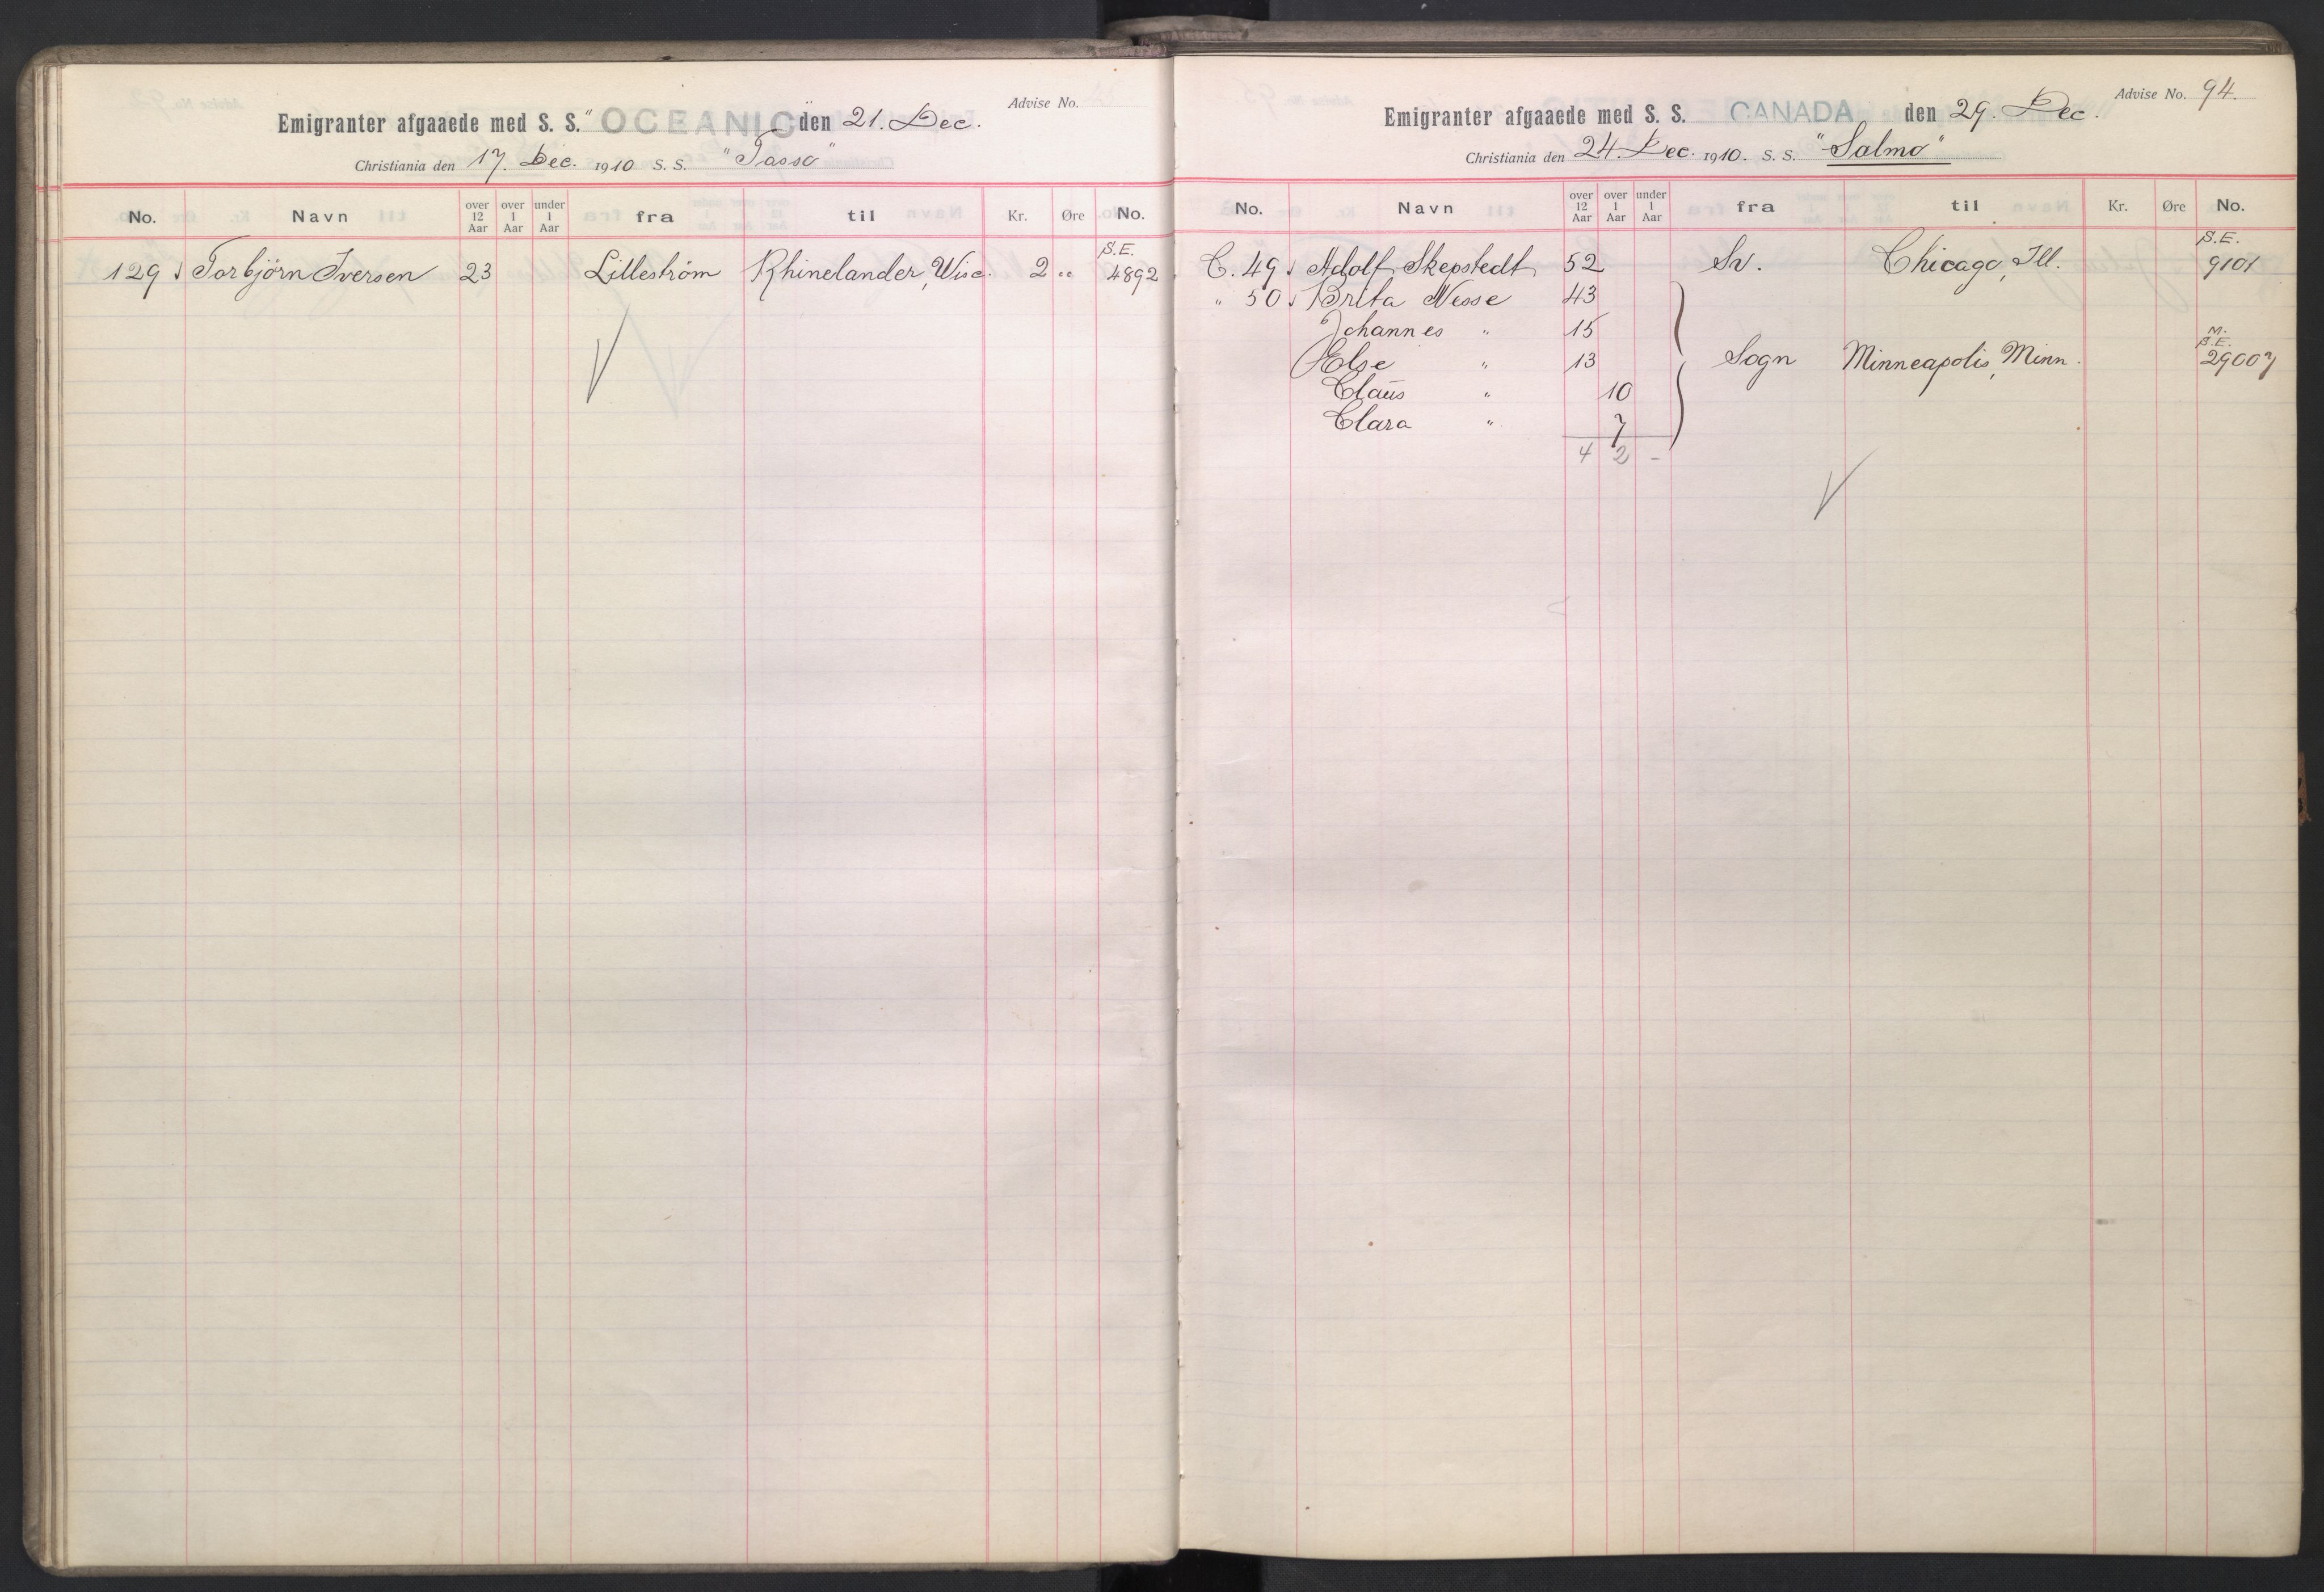 Advise No.
Emigranter afgaaede med S. S. "OCEANIC" den 21. Dec.
Christiania den 17. Dec. 1910 S. S. "Tasso"
No. Navn over 12 Aar over 1 Aar under 1 Aar fra til Kr. Øre No.
S.E.
129 Torbjörn Iversen 23 Lilleström Rhinelander, Wisc. 2 " 4892
Advise No. 94.
Emigranter afgaaede med S. S. CANADA den 29. Dec.
Christiania den 24. Dec. 1910. S. S. "Salmo"
No. Navn over 12 Aar over 1 Aar under 1 Aar fra til Kr. Øre No.
S.E.
C. 49. Adolf Skepstedt 52 Sv. Chicago, Ill. 9101
" 50. Brita Nesse 43
Johannes " 15
M.
S.E.
Else " 13 Sogn Minneapolis, Minn. 29007
Claus " 10
Clara " 7
4 2 -